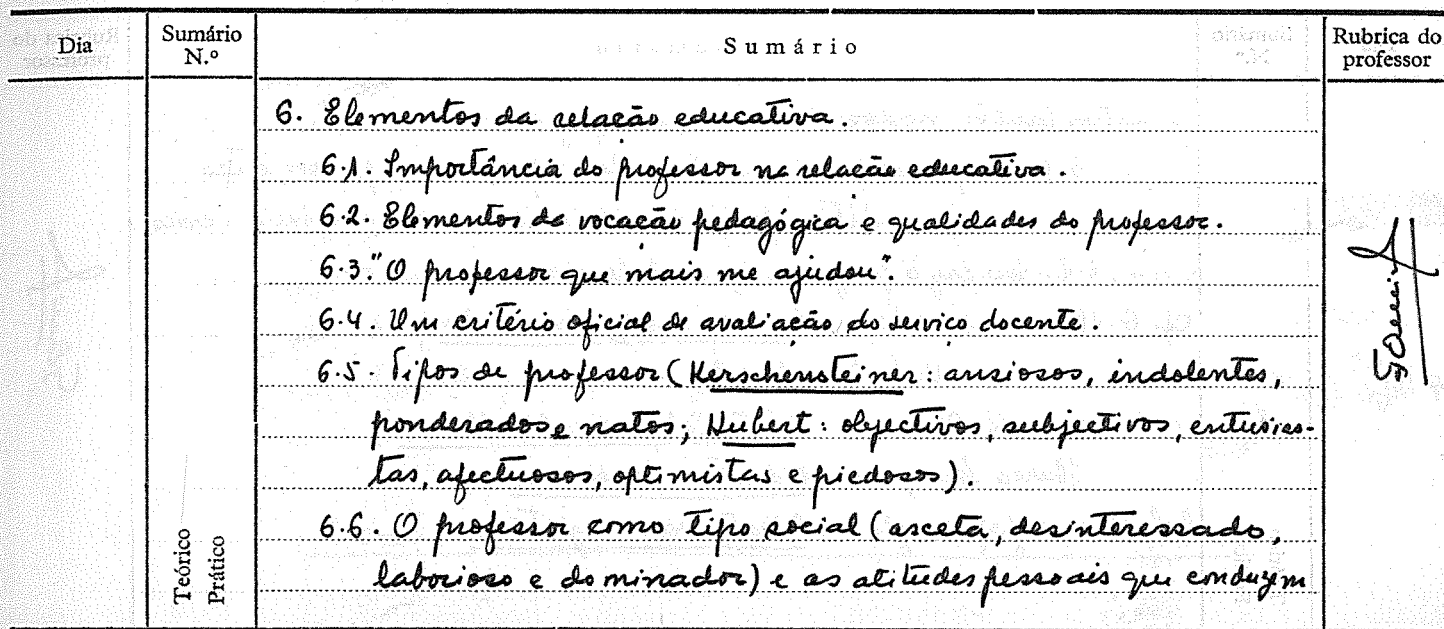 Dia
Sumário N.º
Sumário
Rubrica do professor
6. Elementos da relação educativa.
6.1. Importância do professor na relação educativa.
6.2. Elementos da vocação pedagógica e qualidades do professor.
6.3. "O professor que mais me ajudou".
6.4. Um critério oficial de avaliação do serviço docente.
6.5. Tipos de professor (Kerschensteiner: ansiosos, indolentes,
ponderados e natos; Hubert: objectivos, subjectivos, entusias-
tas, afectuosos, optimistas e piedosos).
6.6. O professor como tipo social (asceta, desinteressado,
laborioso e dominador) e as atitudes pessoais que conduzem
Teórico
Prático